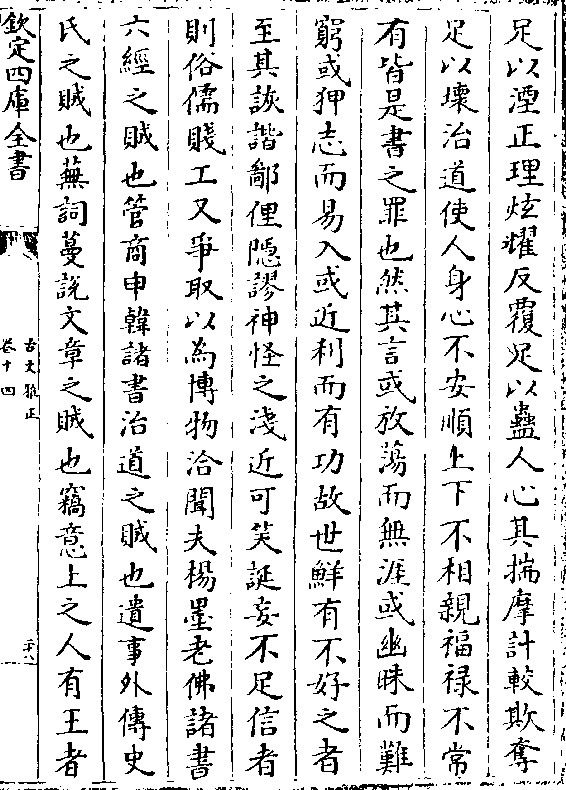 足以湮正理炫耀反覆足以蠱人心其揣摩計較欺奪
足以壞治道使人身心不安順上下不相親福禄不常
有皆是書之罪也然其言或放蕩而無涯或幽昧而難
窮或狎志而易入或近利而有功故世鮮有不好之者
至其詼諧鄙俚隠謬神怪之淺近可笑誕妄不足信者
則俗儒賤工又爭取以為博物洽聞夫楊墨老佛諸書
六經之賊也管商申韓諸書治道之賊也遺事外傳史
氏之賊也蕪詞蔓說文章之賊也竊意上之人有王者
欽定四庫全書
古文雅正
卷十四
二十八